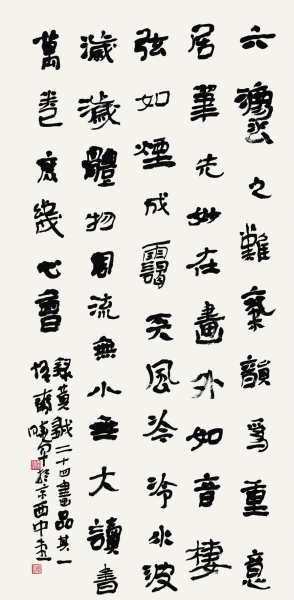 六灋之難氣韻為重意
居筆先妙在畫外如音棲
弦如煙成靄天風泠泠水波
濊濊體物周流無小無大讀書
萬卷庶幾心會
錄黃鉞二十四畫品其一
於京西中